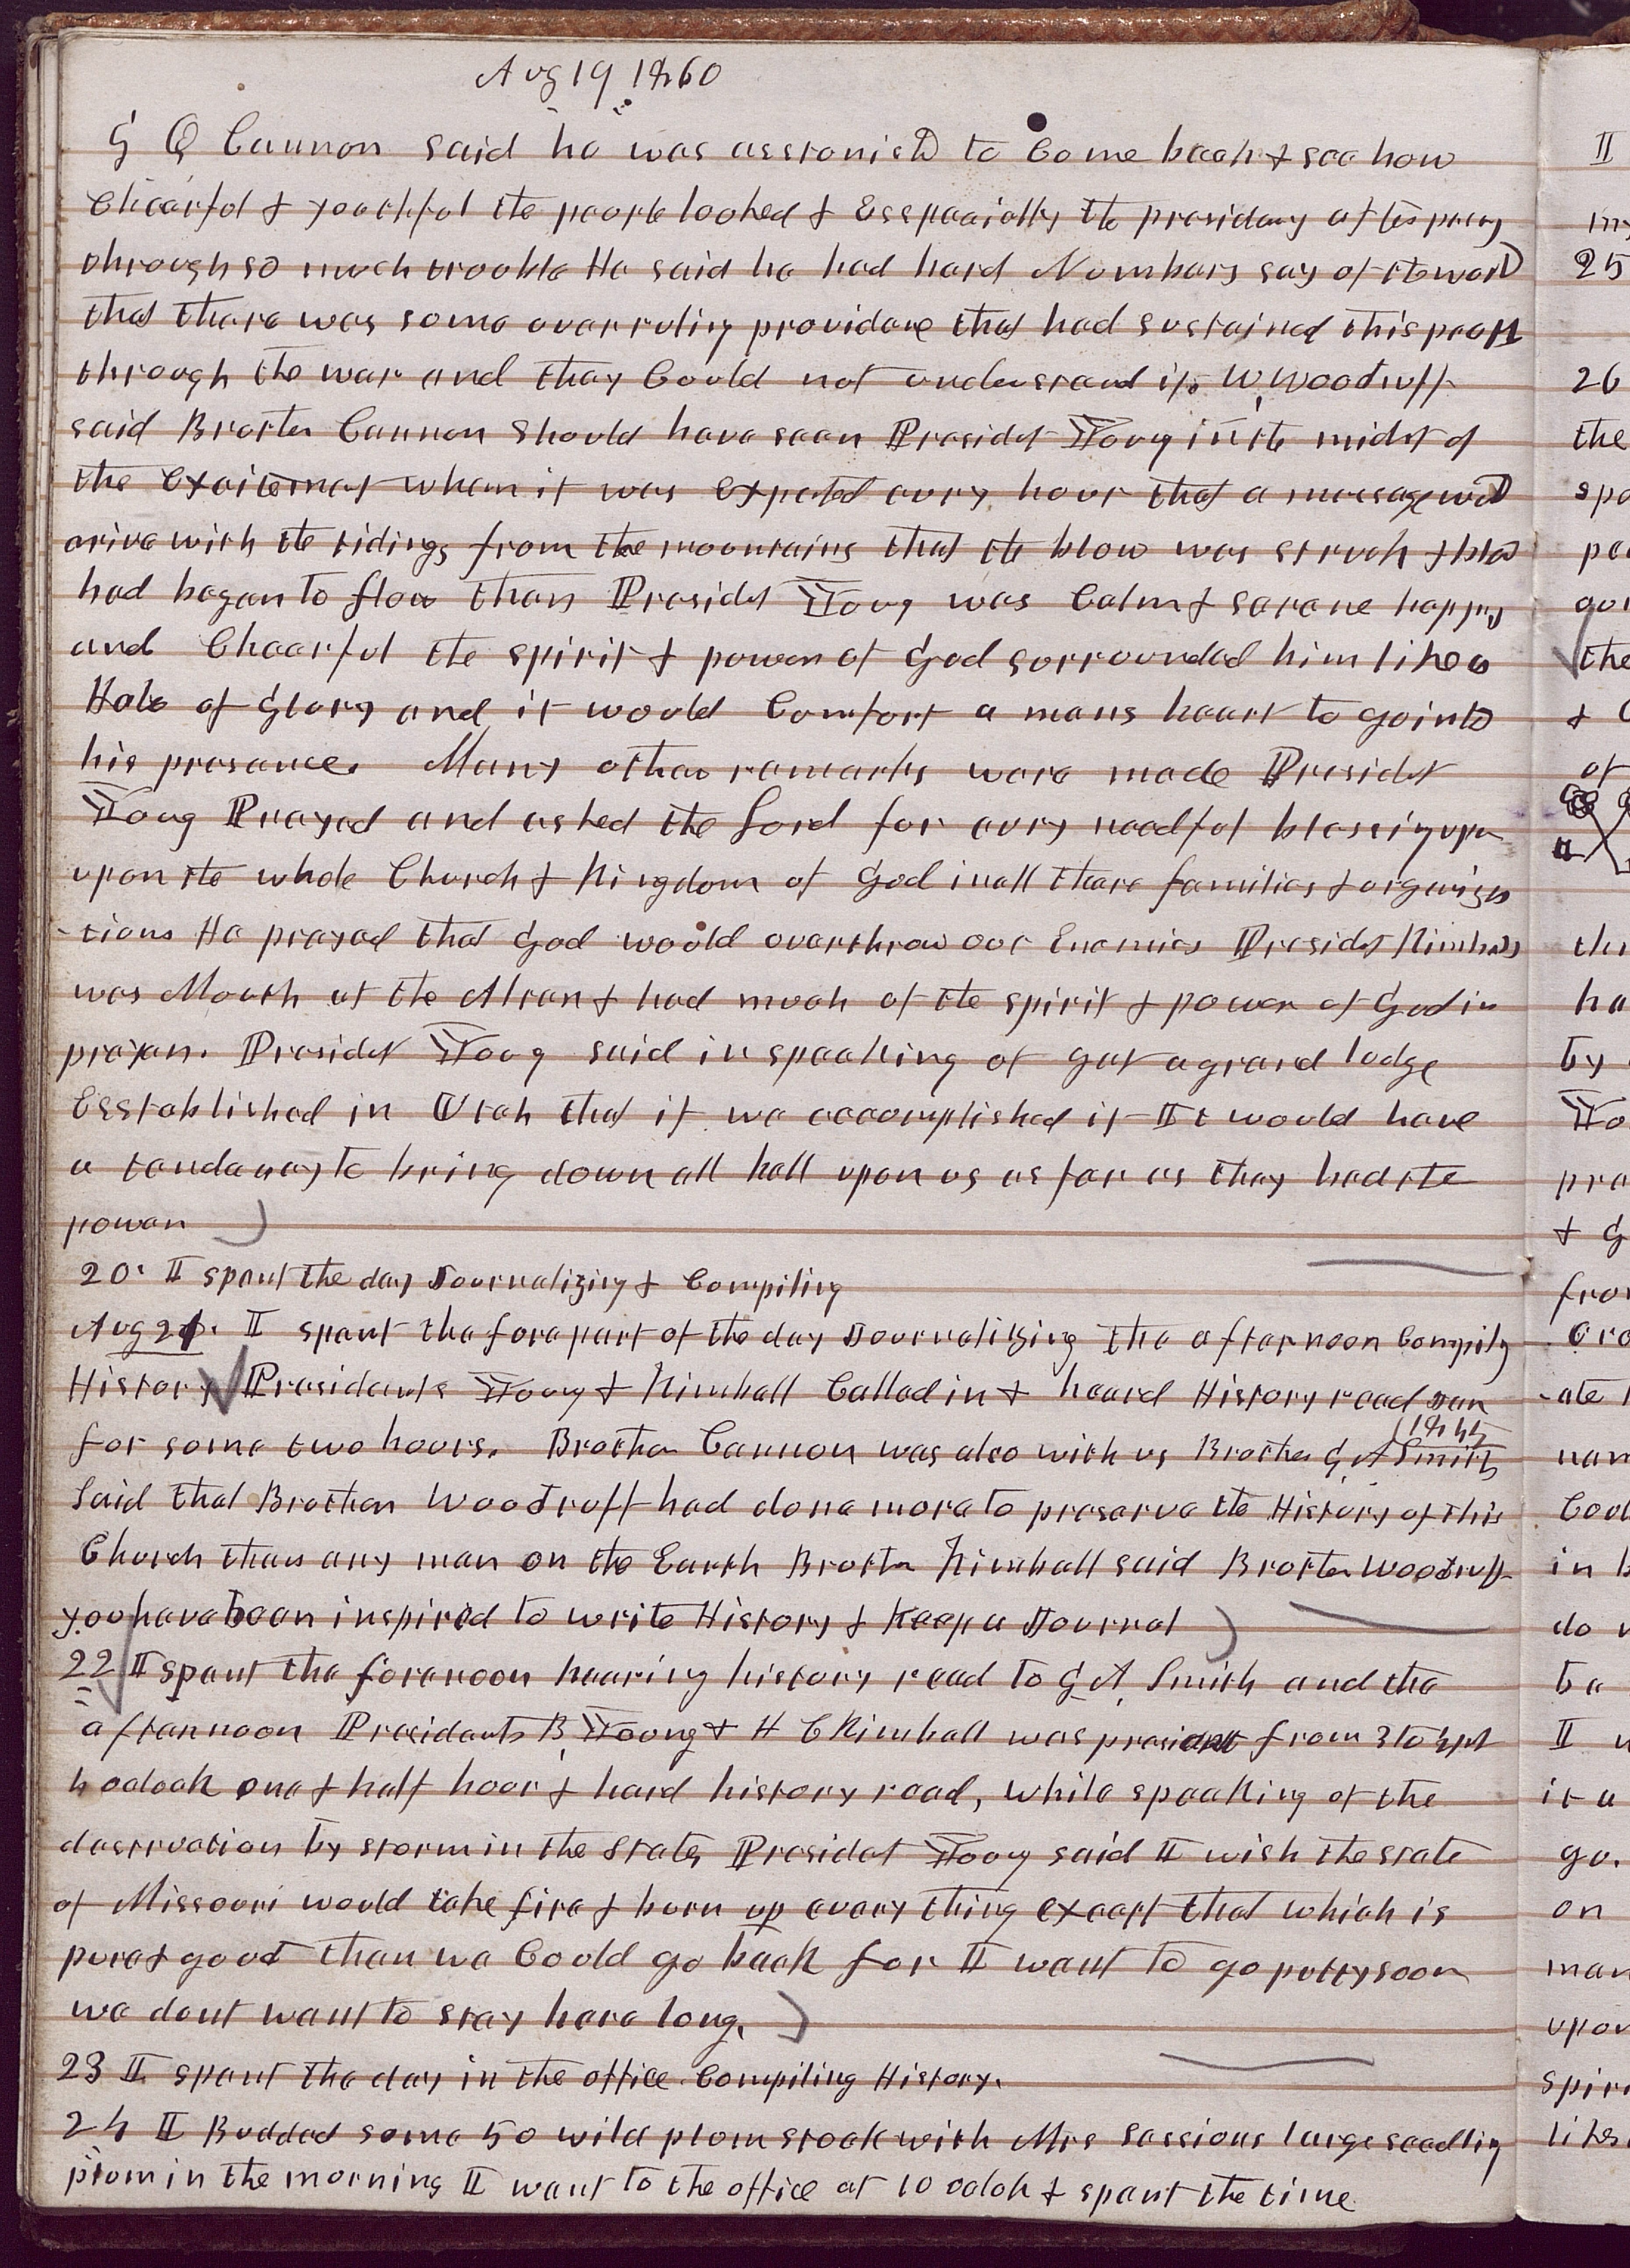 Aug 19 1860
G Q Cannon said he was asstonishd to Come back & see how
Cheerful & youthful the people looked & Esspecially the presidency after passing
through so much trouble He said he had hard Numbers say of the world
that there was some overruling providence that had sustained this people
through the war and they Could not understand it. W. Woodruff
said Brother Cannon Should have seen President Young in the midst of
the Excitement when it was Expected evry hour that a message would
arive with the tidings from the mountains that the blow was struck & blood
had began to flow then President Young was Calm & serene happy
and Cheerful the spirit & power of God surrounded him like a
Halo of Glory and it would Comfort a mans heart to go into
his presence. Many other remarks were made President
Young Prayed and asked the Lord for evry needful blessing upon
upon the whole Church & Kingdom of God in all there families & organiza
-tions He prayed that God would overthrow our Enemies President Kimball
was Mouth at the Altar & had much of the spirit & power of God in
prayer. President Young said in speaking of get a grand lodge
Esstablished in Utah that if we accomplished it It would have
a tendency to bring down all hell upon us as far as they had the
power
20. I spent the day Journalizing & Compiling
Aug 21. I spent the forepart of the day Journalizing the afternoon Compiling
History Presidents Young & Kimball Called in & heard History read Jan
(1845
for some two hours. Brother Cannon was also with us Brother G. A Smith
Said that Brother Woodruff had done more to preserve the History of this
Church than any man on the Earth Brother Kimball said Brother Woodruff
you have been inspired to write History & Keep a Journal
22 I spent the forenoon hearing history read to G. A. Smith and the
afternoon Presidents B. Young & H C Kimball was present from 3 to 1/2 past
4 oclock one & half hour & hard history read, while speaking of the
destruction by storm in the States President Young said I wish the state
of Missouri would take fire & burn up every thing except that which is
pure & good then we Could go back for I want to go putty soon
we dont want to stay here long.
23 I spent the day in the office Compiling History.
24 I Budded some 50 wild plum stock with Mrs Sessions large seedling
plum in the morning I went to the office at 10 oclok & spent the time